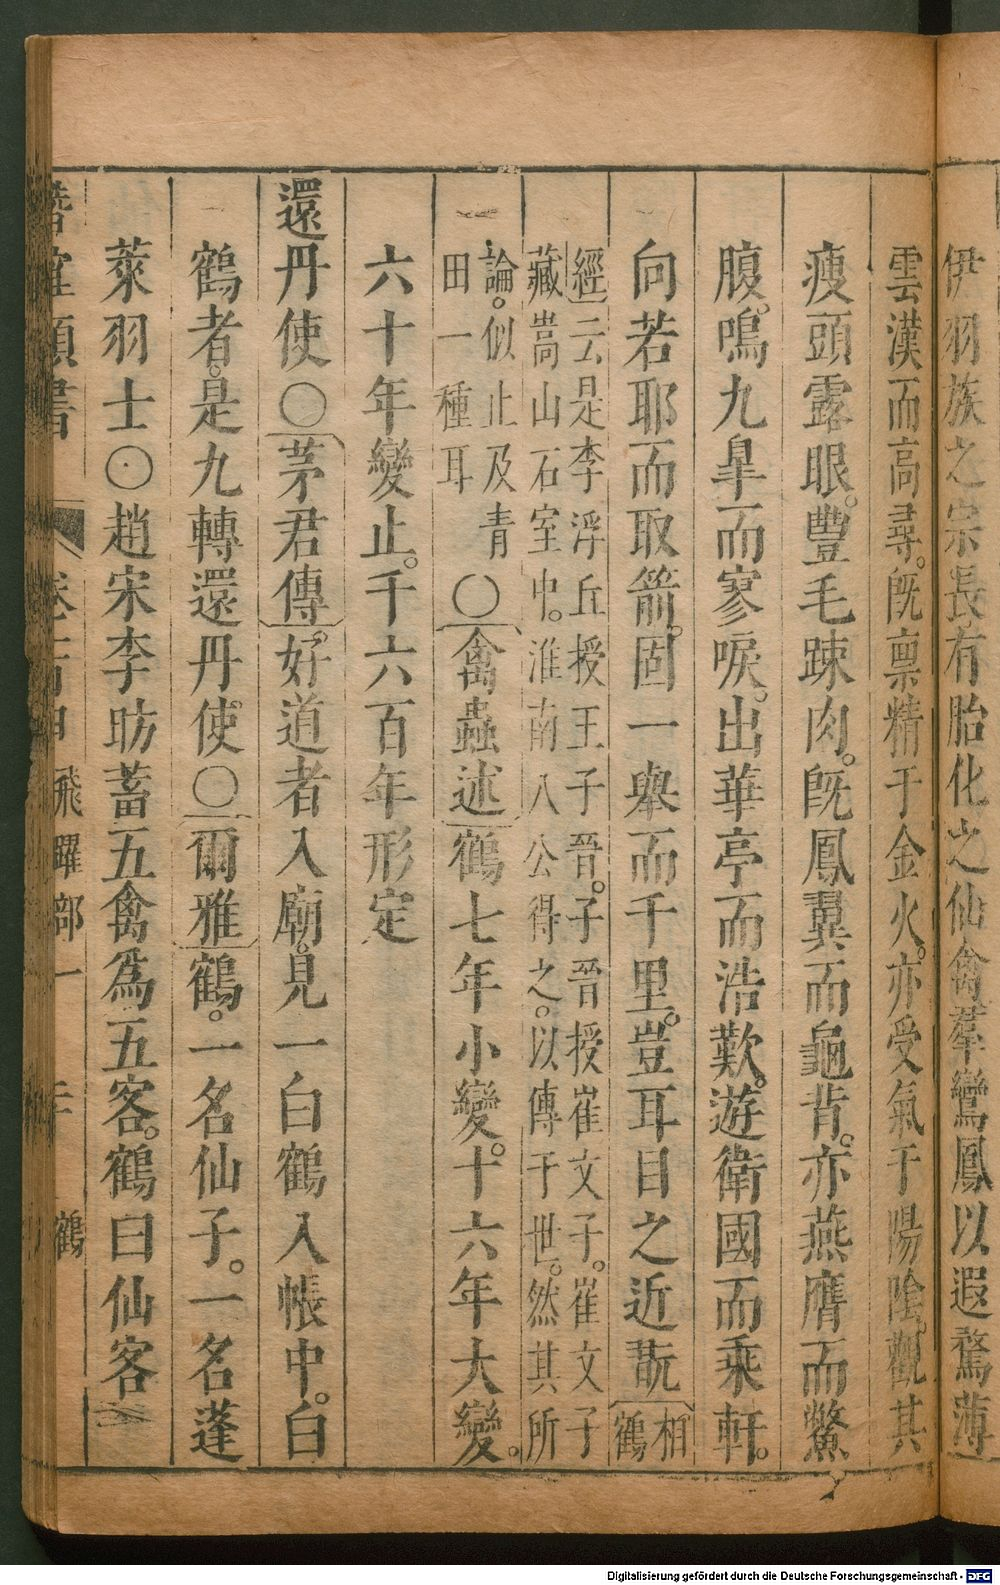 伊羽族之宗長有胎化之仙禽羣鸞鳳以遐騖薄
雲漢而高尋。旣禀精于金火。亦受氣于陽陰。觀其
瘦頭露眼。豐毛踈肉。旣鳳翼而龜背。亦燕膺而鱉
腹。鳴九臯而寥唳。出華亭而浩歎。遊衛國而乘軒。
向若耶而取箭。固一舉而千里。豈耳目之近翫
相鶴
經云是李浮丘授王子晉。子晉授崔文子。崔文子
藏嵩山石室中。淮南八公得之。以傳于世。然其所
論。似止及青
田一種耳
〇禽蟲述鶴七年小變。十六年大變。
六十年變止。千六百年形定
還丹使〇茅君傳。好道者入廟。見一白鶴入帳中。白
鶴者。是九轉還丹使〇爾雅鶴。一名仙子。一名蓬
萊羽士〇趙宋李昉蓄五禽爲五客。鶴曰仙客
類書
飛躍部一
鶴
Digitalisierung gefördert durch die Deutsche Forschungsgemeinschaft - DFG